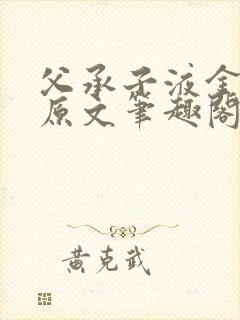 父承子液全
原文笔趣阁
黄克武